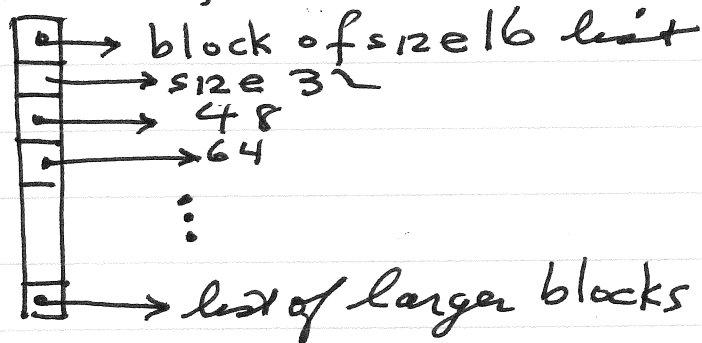 block of size 16 list
size 32
48
64
list of larger blocks